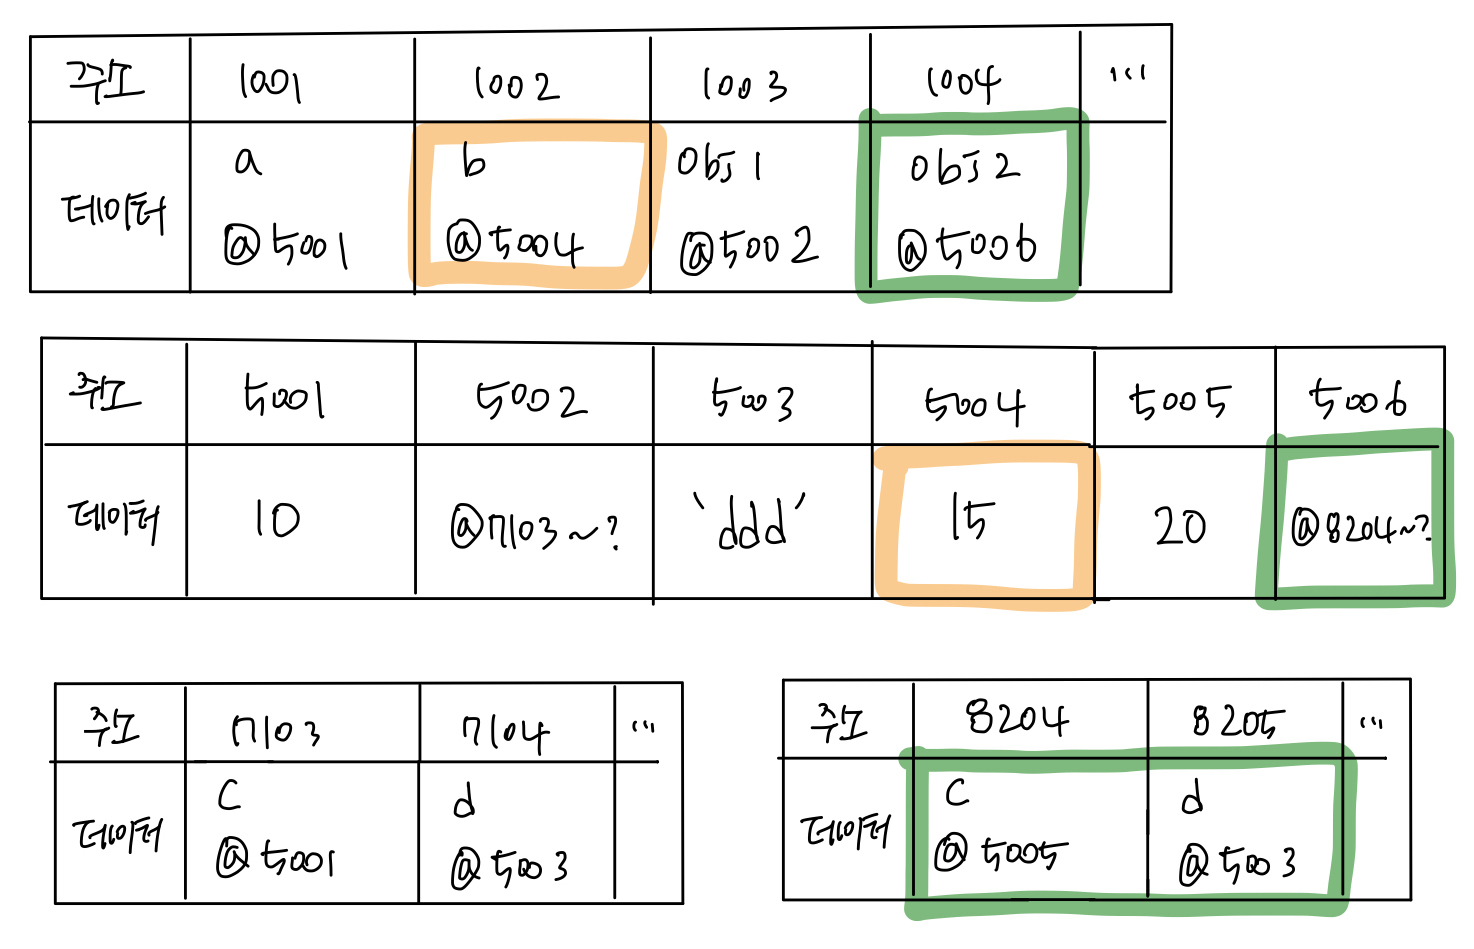 주소 1001 1002 1003 1004 ...
데이터 a b obj 1 obj 2
@5001 @5004 @5002 @5006
주소 5001 5002 5003 5004 5005 5006
데이터 10 @7103~? 'ddd' 15 20 @8204~?
주소 7103 7104 ...
데이터 c d
@5001 @5003
주소 8204 8205 ...
데이터 c d
@5005 @5003